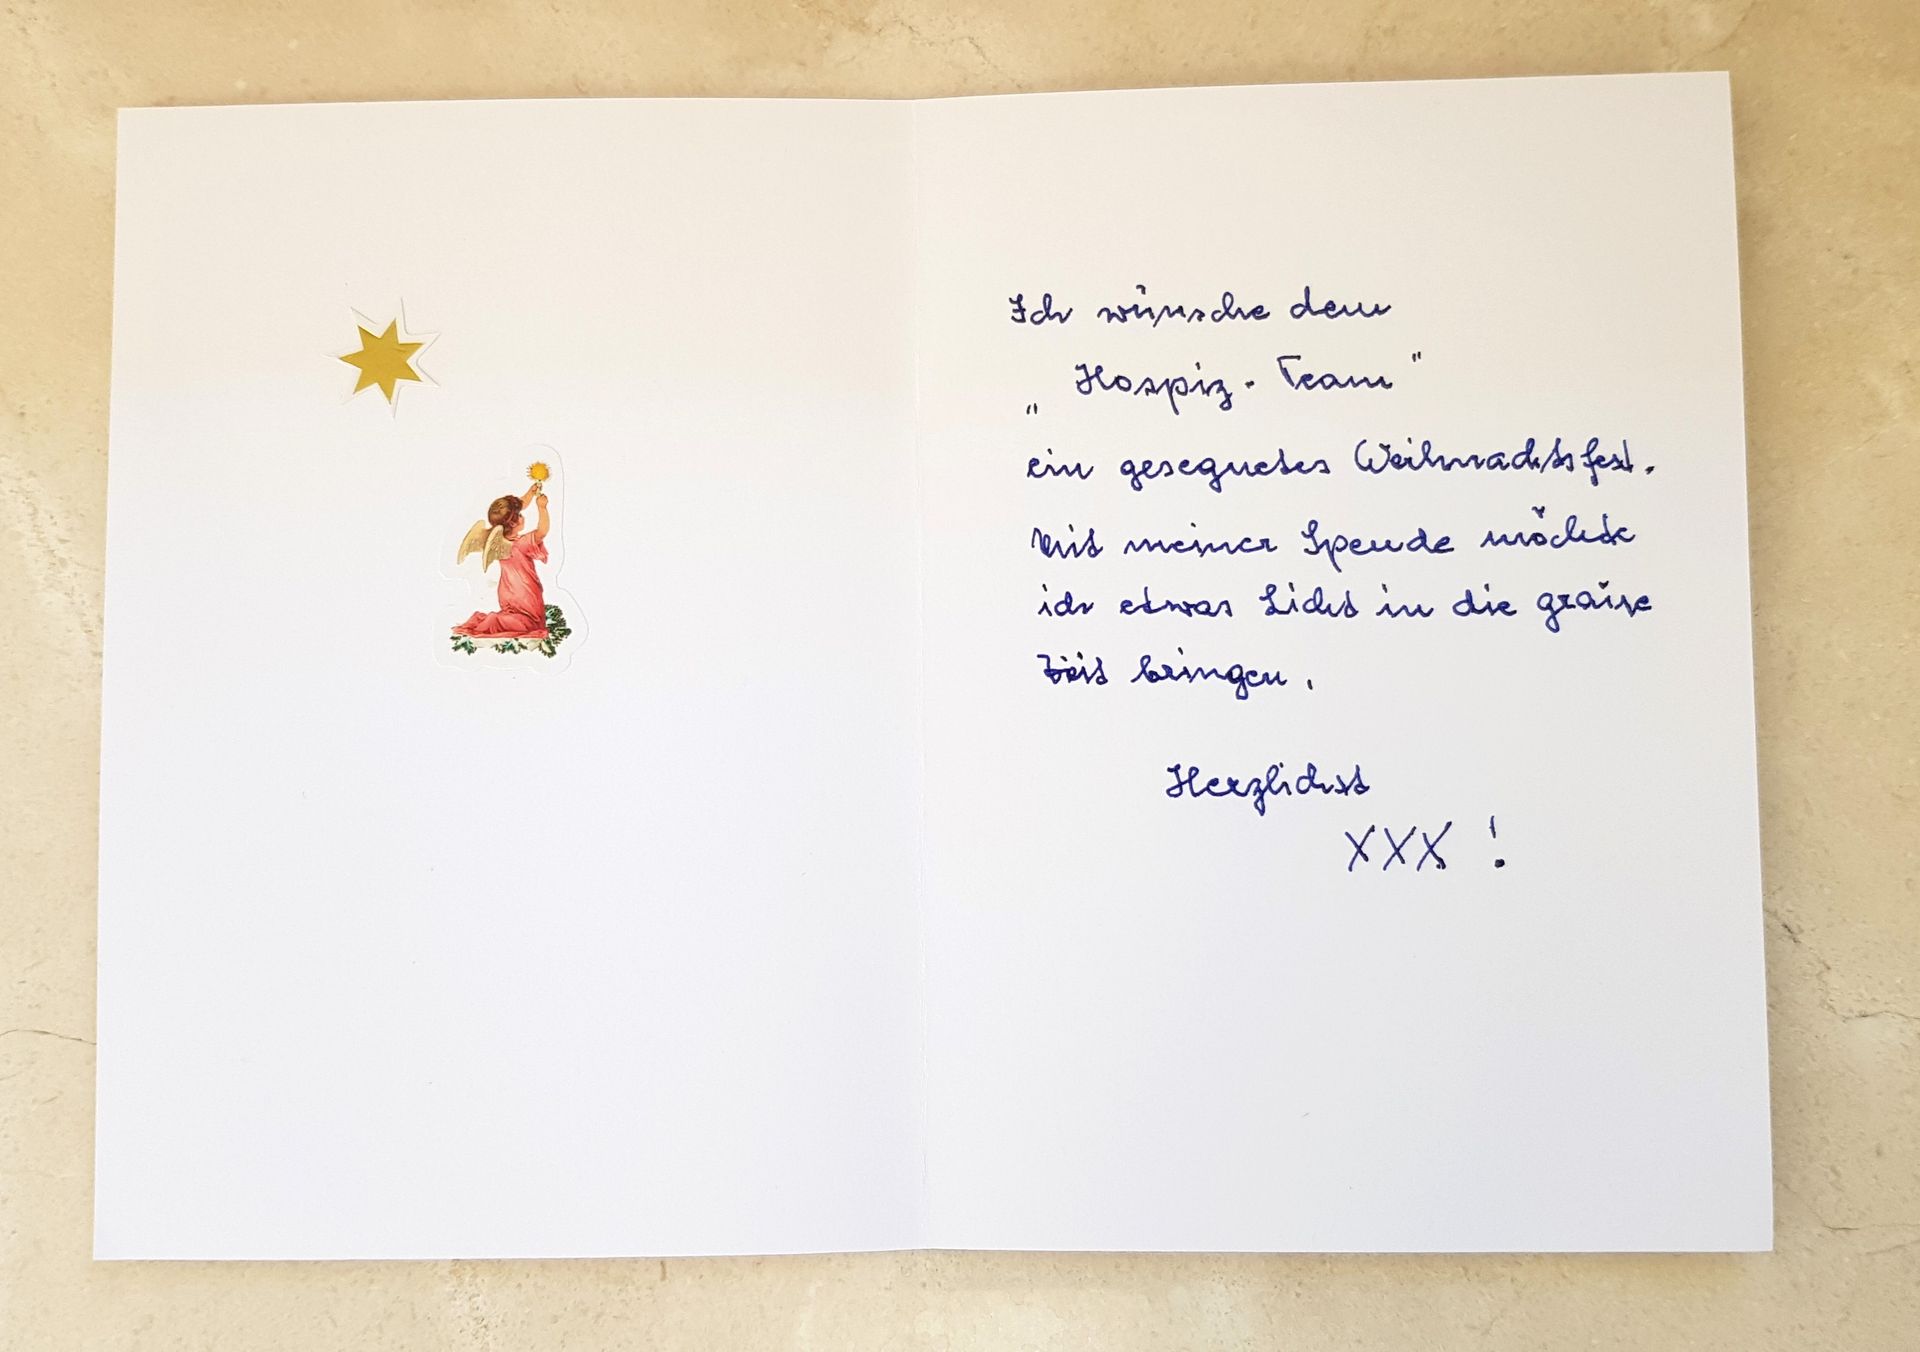 Ich wünsche dem
„Hospiz-Team"
ein gesegnetes Weihnachtsfest.
Mit meiner Spende möchte
ich etwas Licht in die graue
Zeit bringen.
Herzlichst
XXX !